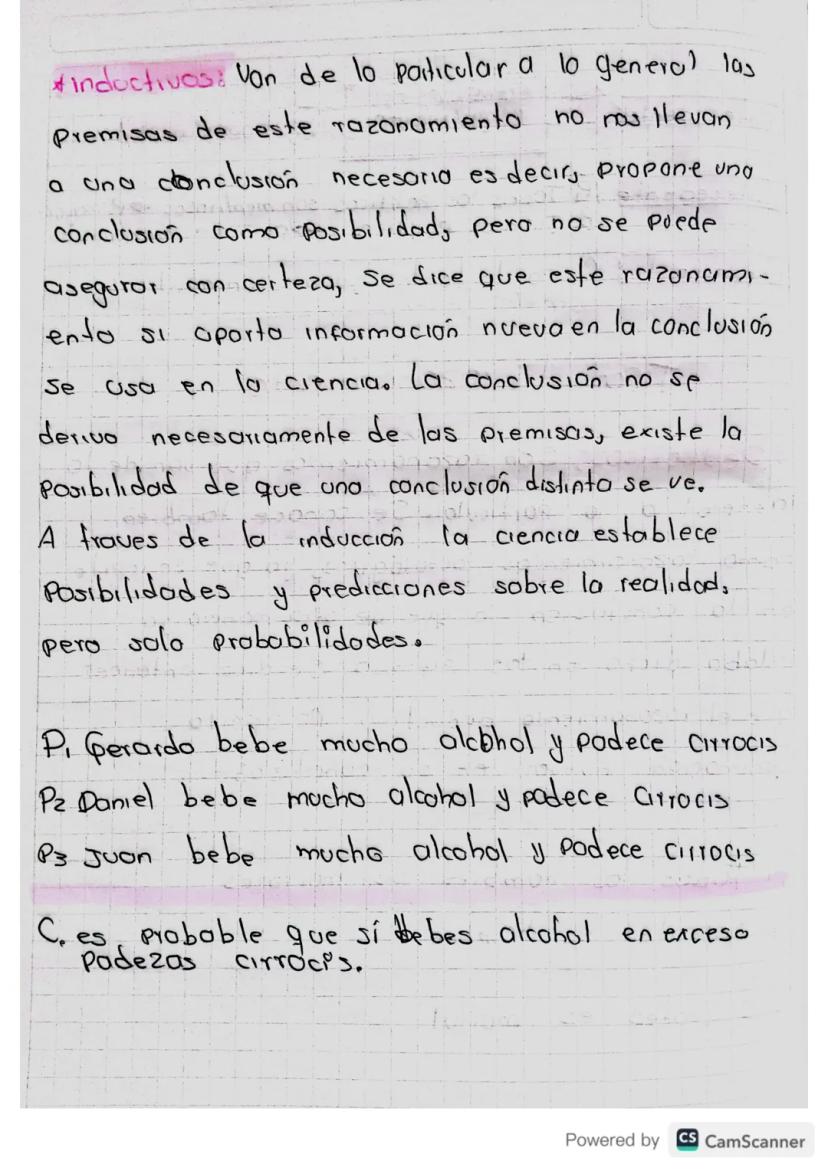 *inductivos: Van de lo particular a lo general las
premisas de este razonamiento no nos llevan
a una conclusión necesaria es decir, propone una
conclusión como posibilidad, pero no se puede
asegurar con certeza, se dice que este razonami-
ento si aporta información nueva en la conclusión
se usa en la ciencia. La conclusión no se
deriva necesariamente de las premisas, existe la
posibilidad de que una conclusión distinta se ve.
A traves de la inducción la ciencia establece
posibilidades y predicciones sobre la realidad,
pero solo probabilidades.
P1 Gerardo bebe mucho alcohol y padece cirrocis
P2 Daniel bebe mucho alcohol y padece cirrocis
P3 Juan bebe mucho alcohol y padece cirrocis
C. es probable que sí bebes alcohol en exceso
padezas cirrocis.
Powered by CS CamScanner